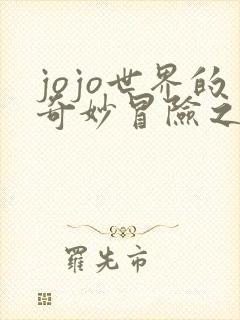 jojo世界的
奇妙冒險之
羅先市